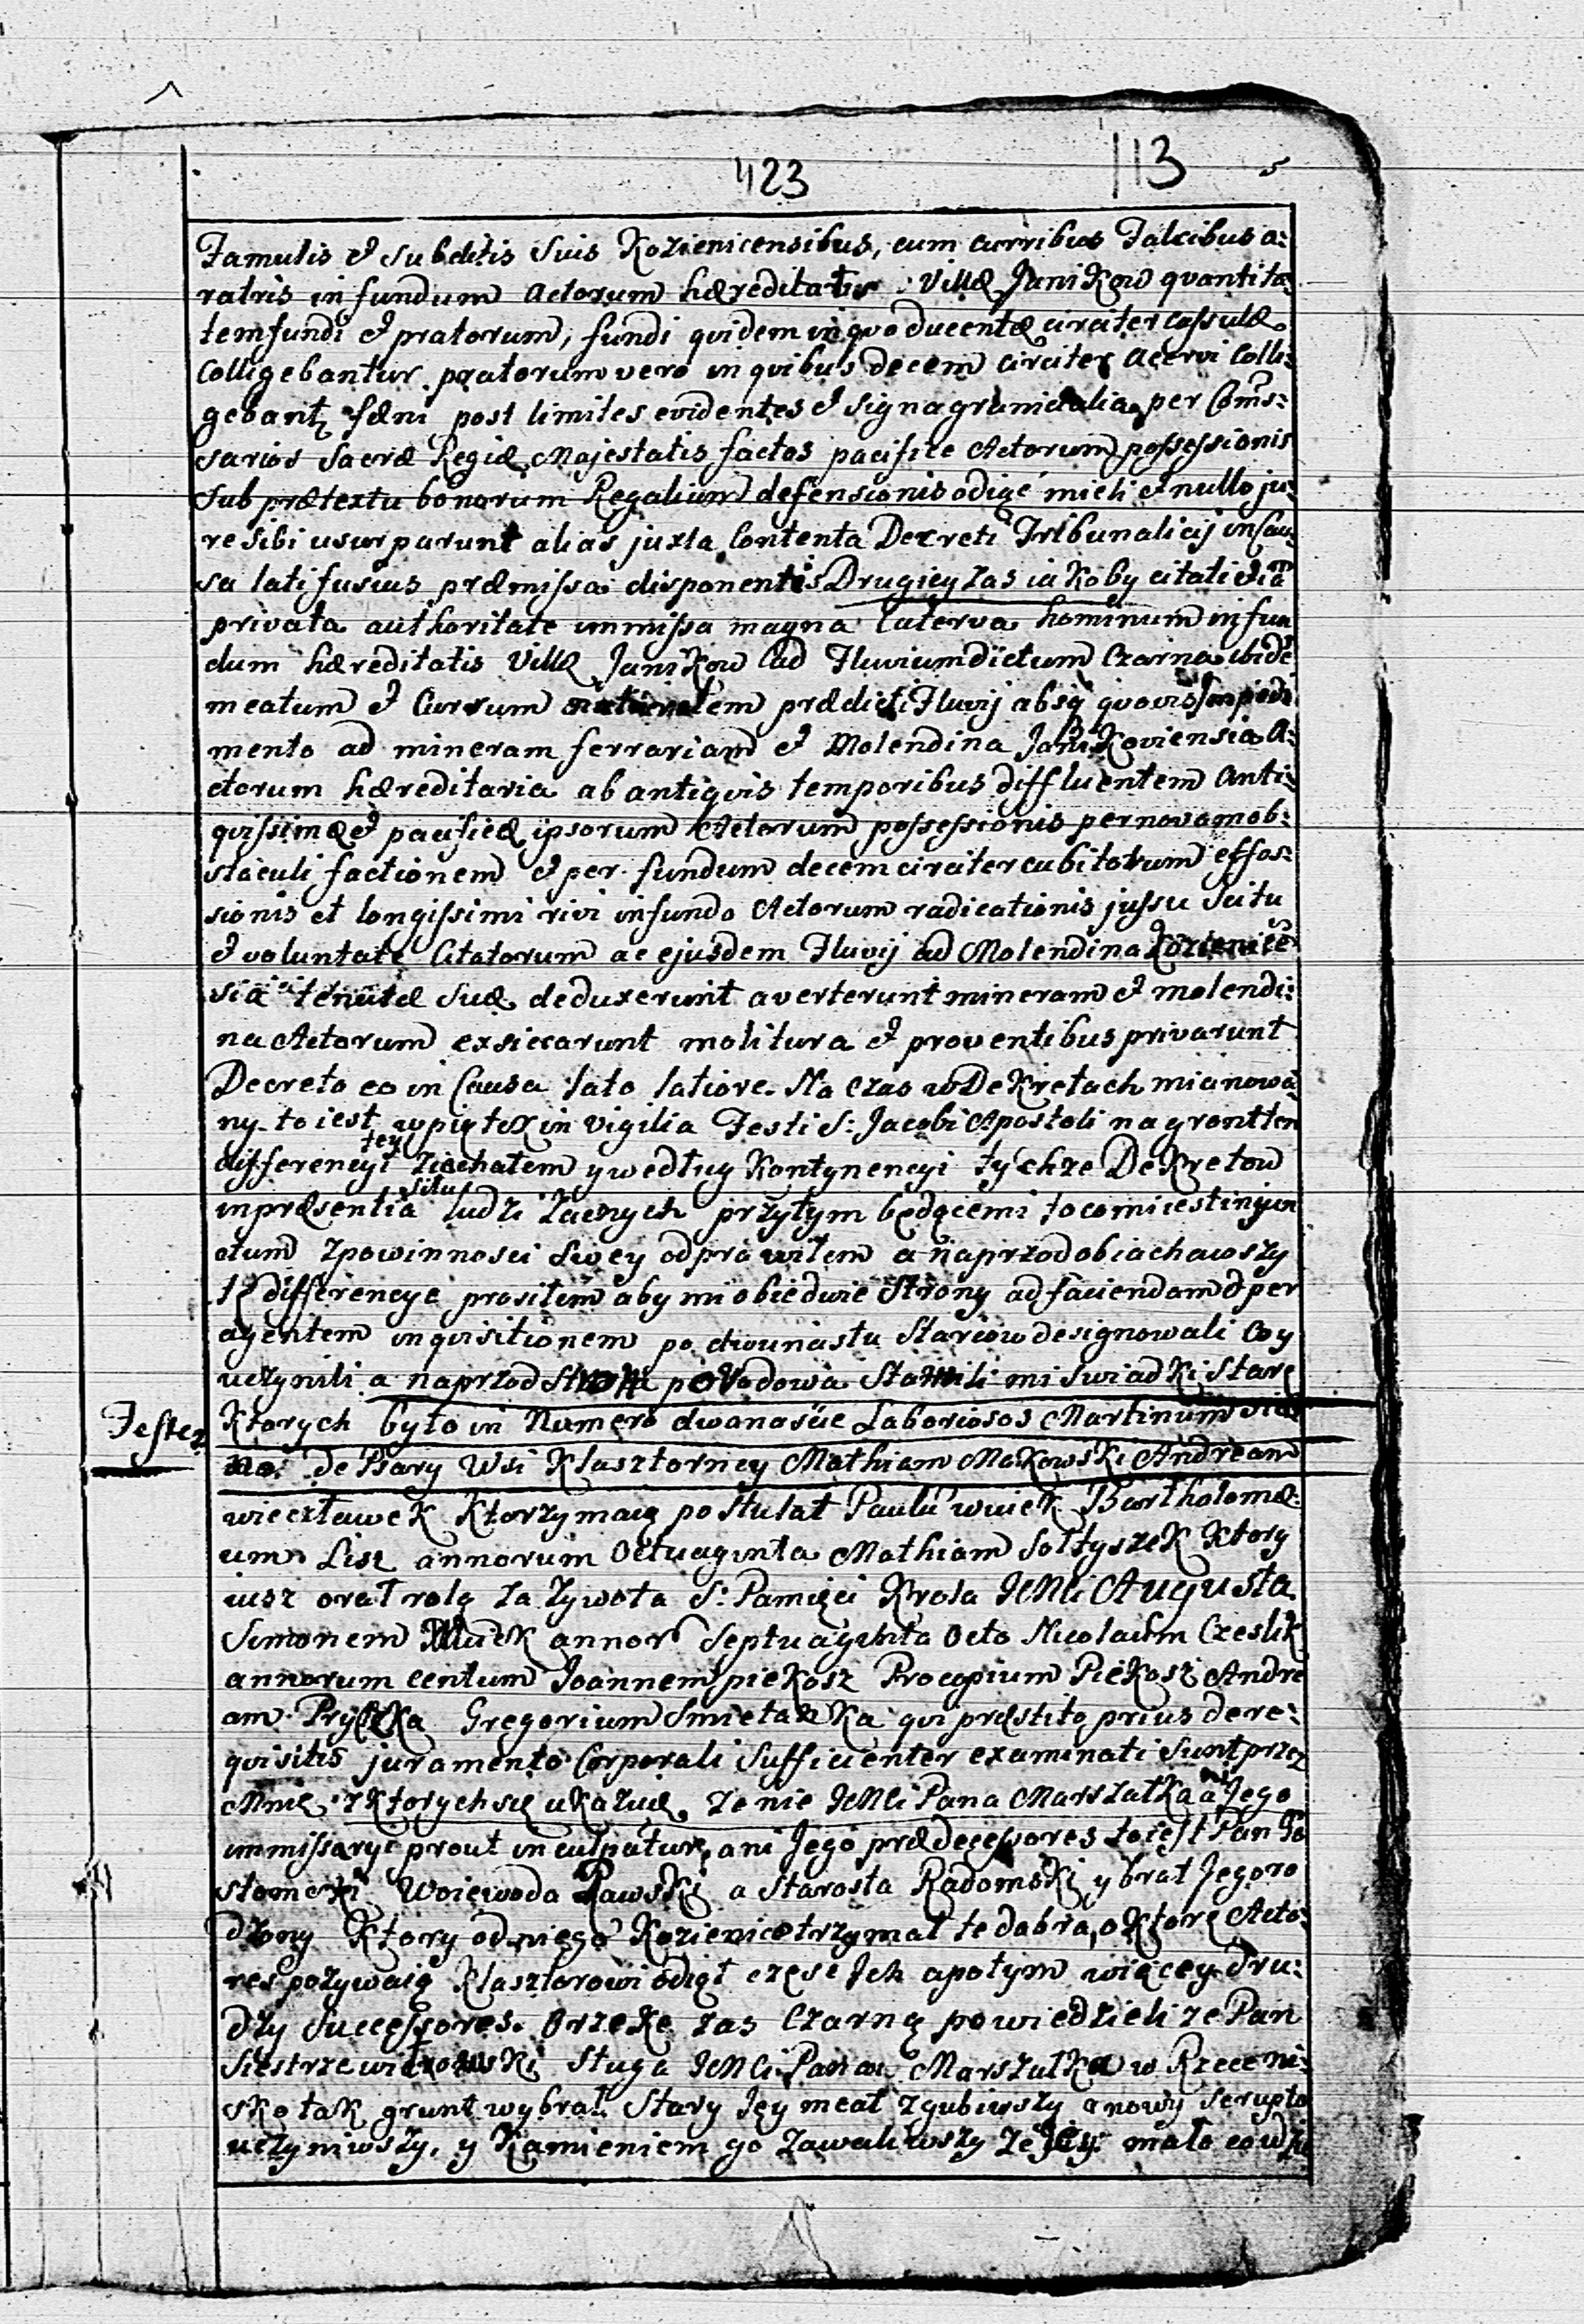 423
113
5
Famulis et Subditis Suis Kozienicensibus, cum curribus Falcibus a:
ratris in fundum Actorum hæreditatis Villæ Janikow quantita
tem fundi et pratorum, fundi quidem in quo ducentæ circiter cassulæ
Colligebantur pratorum vero in quibus decem circiter acervi Colli:
gebant fæni post limites evidentes et signa granicialia per Comis:
sarios Sacræ Regiæ Majestatis factos pacifice Actorum possessionis
Sub prætextu bonorum Regalium defensionis et nullo ju:
re sibi usurparunt alias juxta Contenta Decreti Tribunalicij in Cau:
sa lati fusius præmissa disponentis Drugiey zas iakoby citati etiā
privata authoritate immissa magna Caterva hominum in fun
dum hæreditatis Villæ Janikow ad Fluvium dictum Czarna ibidē
meatum et Cursum prædicti Fluvij absq quovis Impedi
mento ad mineram ferrariam et Molendina Janikoviensia A:
ctorum hæreditaria ab antiquis temporibus diffluentem anti:
quissimæ et pacificæ ipsorum Actorum possessionis per novam ob:
staculi factionem et per fundum decem circiter cubitorum effos:
sionis et longissimi rivi in fundo Actorum radicationis jussu Scitu
et voluntate Citatorum ac ejusdem Fluvij ad Molendina Kozienicē
sia tenutæ Suæ deduxerunt averterunt mineram et molendi:
na Actorum exsiccarunt molitura et proventibus privarunt
Decreto eo in Causa lato latiore. Na czas w Dekretach mianowa
ny to iest w piątek in Vigilia Festi S: Jacobi Apostoli na gront ten
tey
differencyi ziachałem y według Kontynencyi tychze Dekretow
situ
in præsentia ludzi zacnych przytym będącemi to co mi iest injun
ctum z powinnosci Swey odprawiłem a naprzod obiachawszy
tę differencye prosiłem aby mi obiedwie Strony ad faciendam et per
agentem inquisitionem po dwunastu Starcow designowali Co y
uczynili a naprzod Strona powodowa Stawili mi swiadki stare
Testes
Ktorych było in Numero dwanascie Laboriosos Martinum
de Psary Wsi Klasztorney Mathiam Makowski Andream
wiecztawek Ktorzy maią po stulat Bartholomæ:
um Lisz annorum Octuaginta Mathiam Sołtyszek Ktory
iusz orał rolą za zywota S: Pamięci Krola JEMCi Augusta
Simonem annor Septuaginta Octo Nicolaum Czeslik
annorum centum Joannem piekosz Procopium Piekosz Andre
am Gregorium Smietanka qui præstito prius de re:
quisitis juramento Corporali Sufficienter examinati Sunt przez
Mnie z Ktorych się ukazuie, ze nie JEMCi Pana Marszałka ani Jego
immissarye prout inculpatur, ani Jego prædecessores to iest Pan Go
stomski Woiewoda Rawski a Starosta Radomski y brat Jego ro
dzony Ktory od niego Kozienice trzymał te dobra, o Ktorę Acto:
res pozywaią Klasztorowi odiął częsc Ich a potym więcey dru:
dzy Successores. O rzekę zas Czarną powiedzieli ze Pan
Sługa JEMCi Pana Marszałka w Rzeceni:
sko tak grunt wybrał Stary Iey meat zgubiwszy a nowy
uczyniwszy, y Kamieniem go zawaliwszy ze Iey mało co